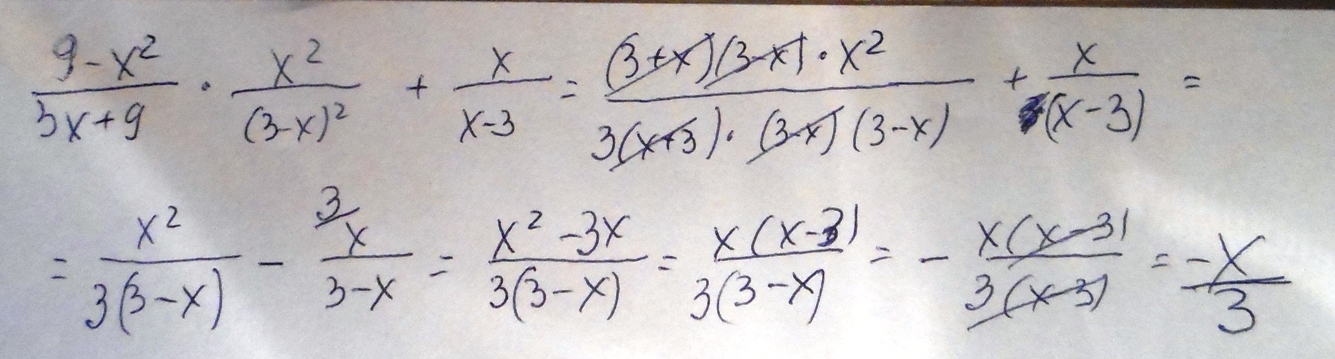 (9-x²)/(3x+9) · x²/(3-x)² + x/(x-3) = ((3+x)(3-x)·x²)/(3(x+3)·(3-x)(3-x)) + x/(x-3) =
= x²/(3(3-x)) - ³⁄ x/(3-x) = (x²-3x)/(3(3-x)) = x(x-3)/(3(3-x)) = - x(x-3)/(3(x-3)) = -x/3